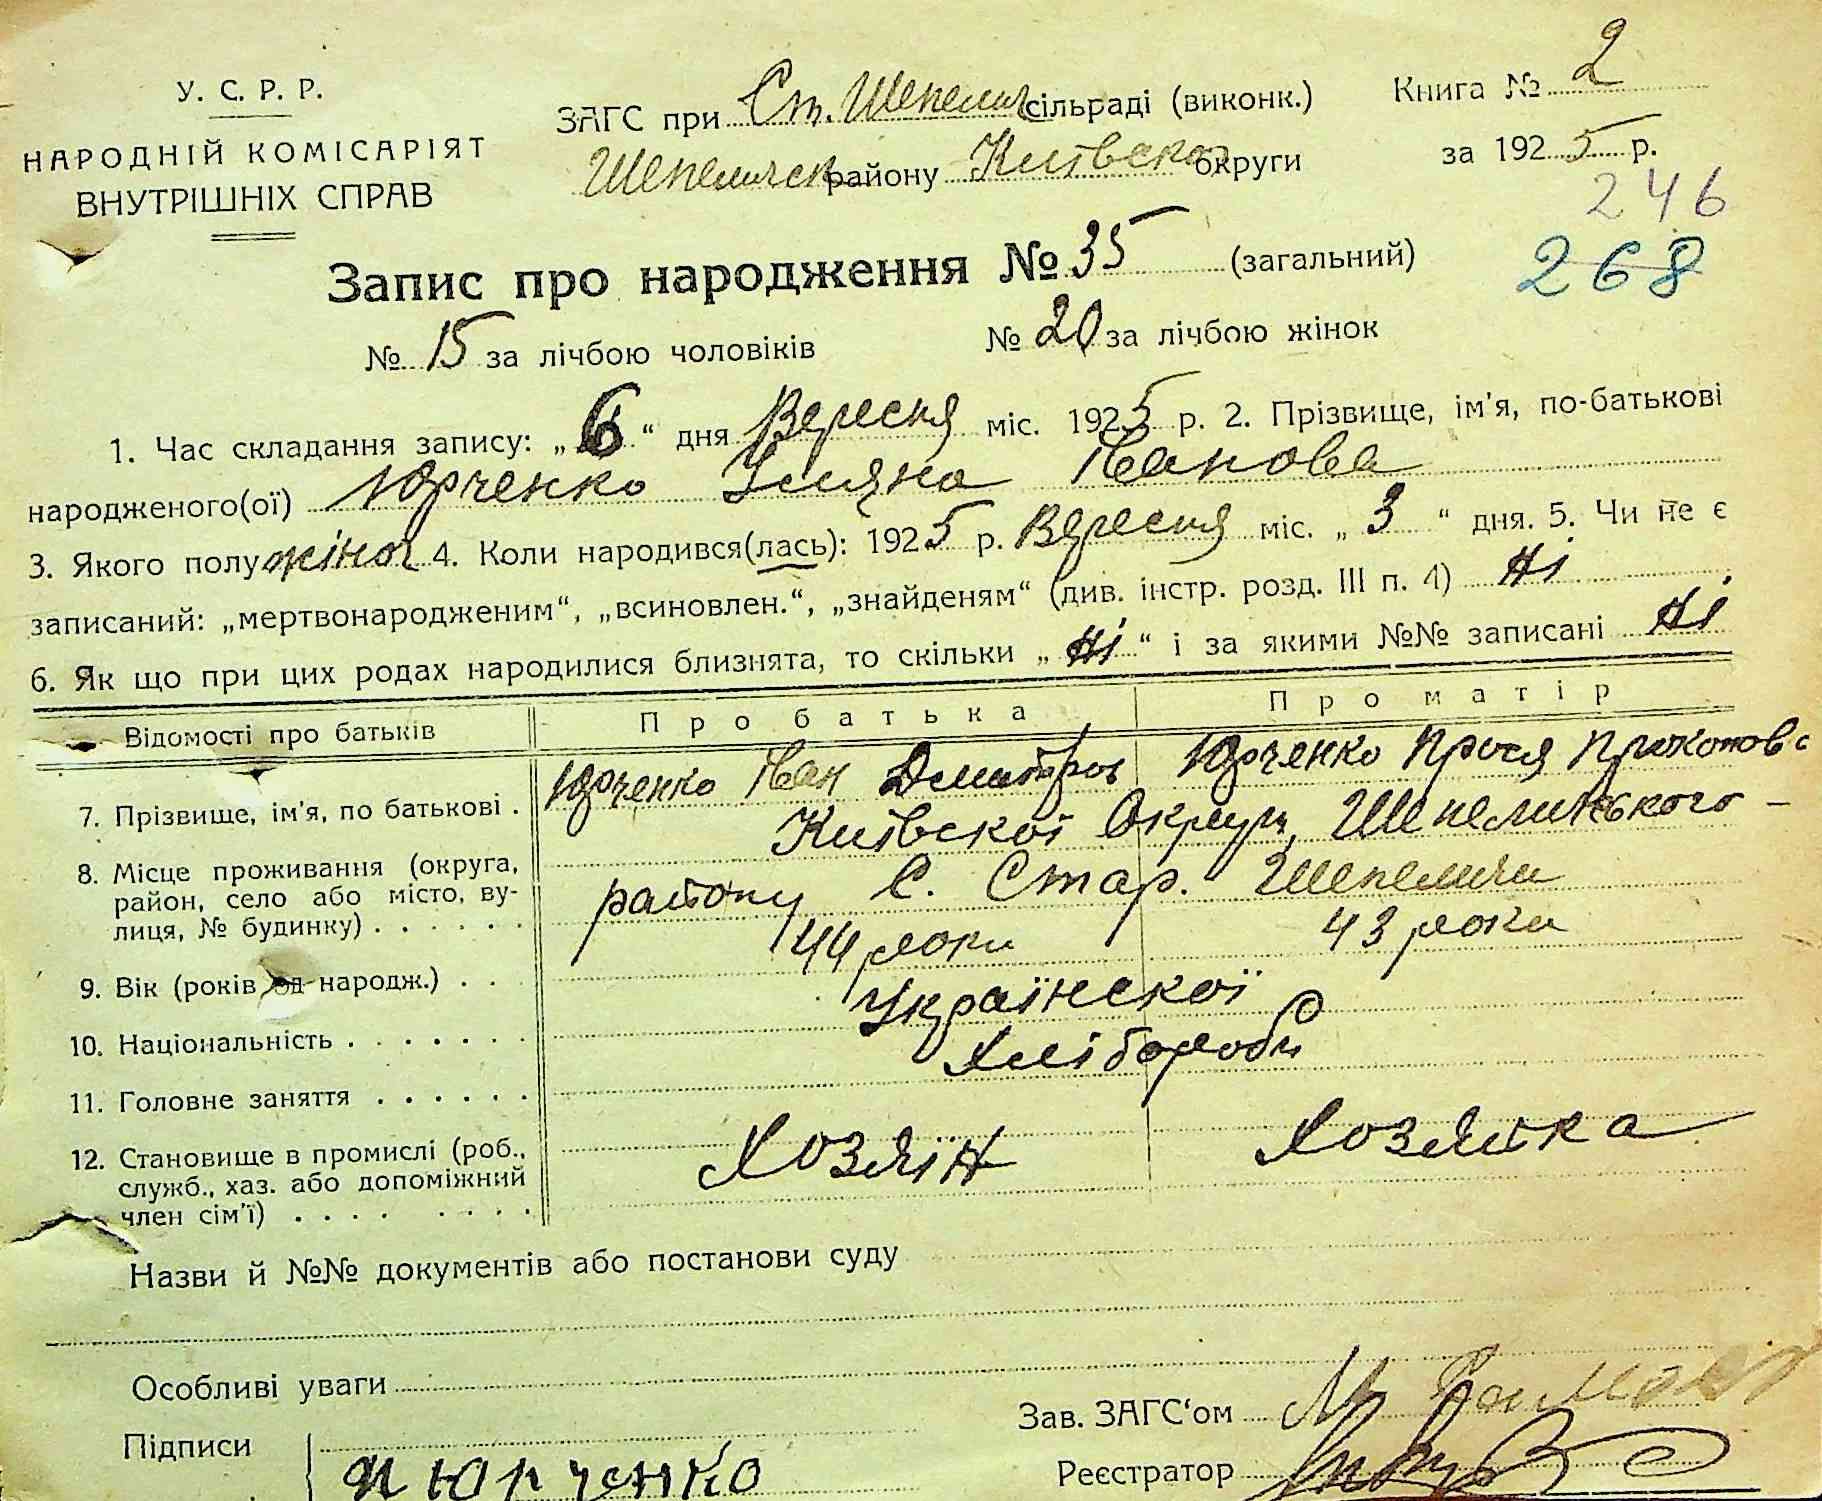 У. С. Р. Р.
НАРОДНІЙ КОМІСАРІЯТ
ВНУТРІШНІХ СПРАВ
ЗАГС при Ст. Шепелич сільраді (виконк.)
Шепеличск району Київскої округи
Книга № 2
за 1925 р.
246
268
Запис про народження № 35 (загальний)
№ 15 за лічбою чоловіків № 20 за лічбою жінок
1. Час складання запису: „6“ дня Вересня міс. 1925 р. 2. Прізвище, ім'я, по-батькові
народженого(ої) Юрченко Уляна Іванова
3. Якого полу жіноч 4. Коли народився(лась): 1925 р. Вересня міс. „3“ дня. 5. Чи не є
записаний: „мертвонародженим“, „всиновлен.“, „знайденям“ (див. інстр. розд. III п. 4) Ні
6. Як що при цих родах народилися близнята, то скільки „Ні“ і за якими №№ записані Ні
Відомості про батьків Про батька Про матір
7. Прізвище, ім'я, по батькові . Юрченко Іван Дмитров Юрченко Прося Прокопов
8. Місце проживання (округа,
район, село або місто, ву-
лиця, № будинку) . . . . . .
Київскої Округи, Шепеличського -
району С. Стар. Шепеличи
9. Вік (років од народж.) . . . 44 роки 43 роки
10. Національність . . . . . . . Українскої
11. Головне заняття . . . . . . Хлібороби
12. Становище в промислі (роб.,
служб., хаз. або допоміжний
член сім'ї) . . . . . . . .
Хозяїн Хозяйка
Назви й №№ документів або постанови суду
Особливі уваги
Зав. ЗАГС'ом
Підписи Юрченко
Реєстратор